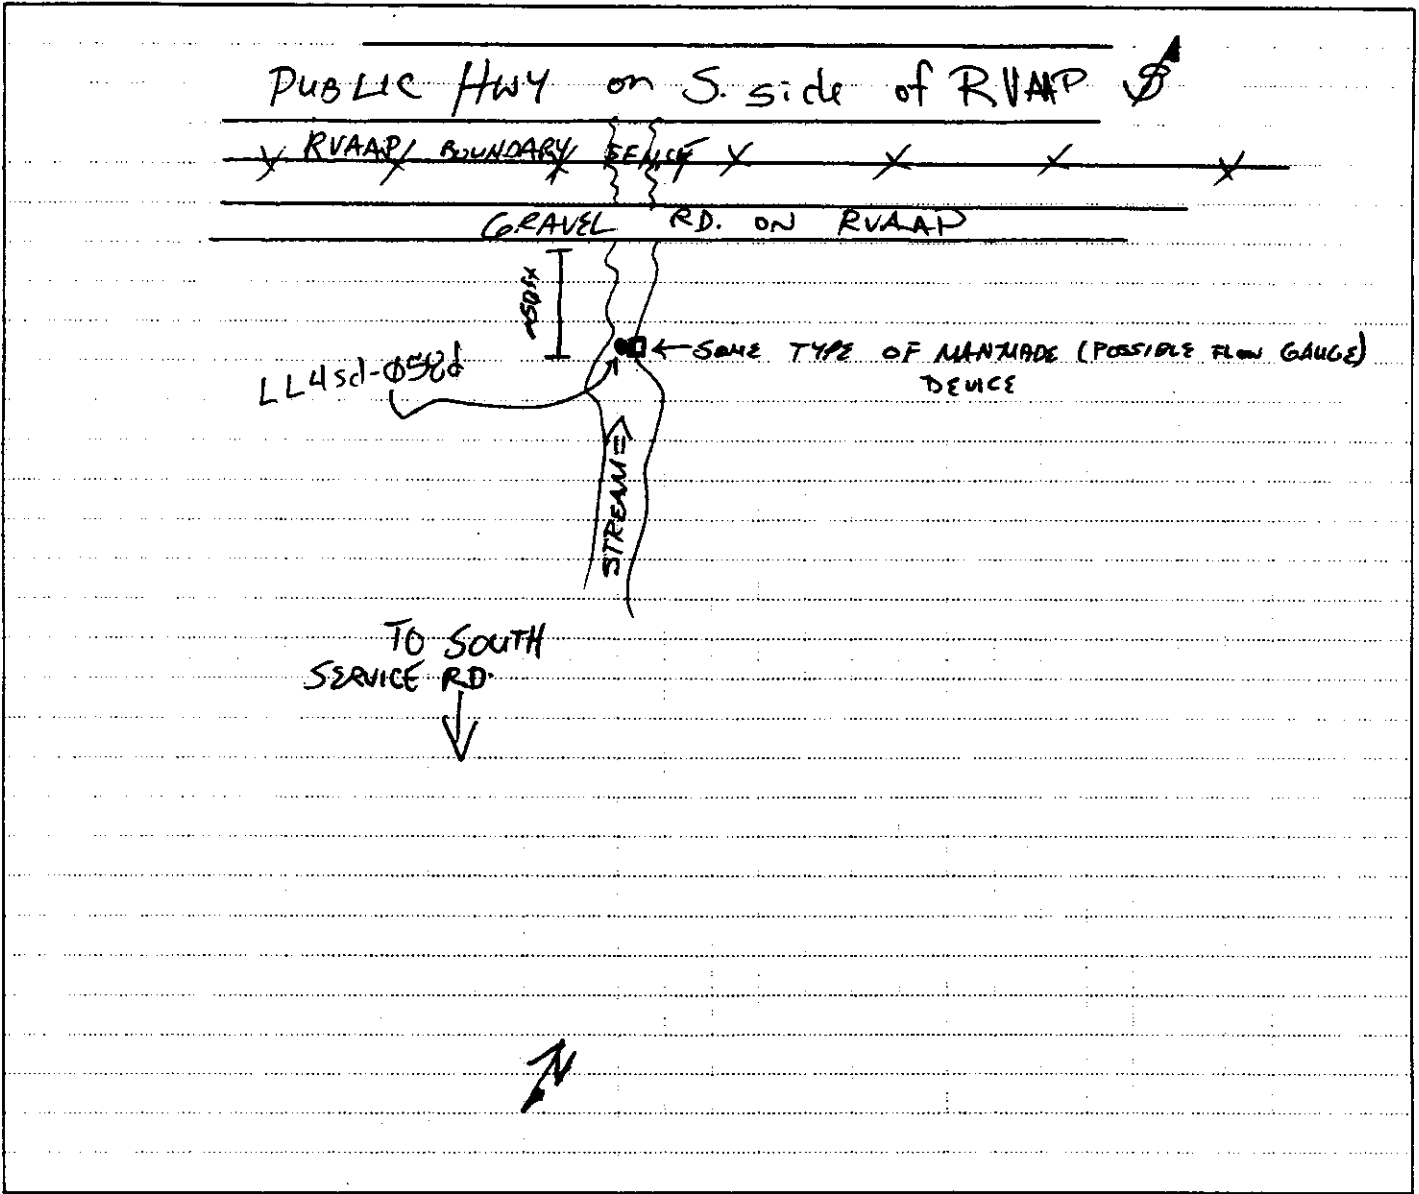 PUBLIC HWY on S. side of RVAAP S
RVAAP BOUNDARY FENCE
GRAVEL RD. ON RVAAP
~50 ft
← SOME TYPE OF MANMADE (POSSIBLE FLOW GAUGE)
DEVICE
LL4sd-
STREAM ⇒
TO SOUTH
SERVICE RD.
N